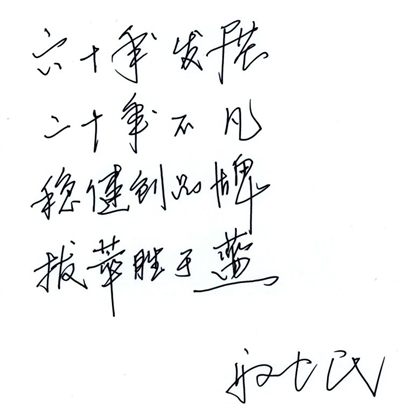 六十年发展
二十年不凡
稳健创品牌
拔萃胜于蓝